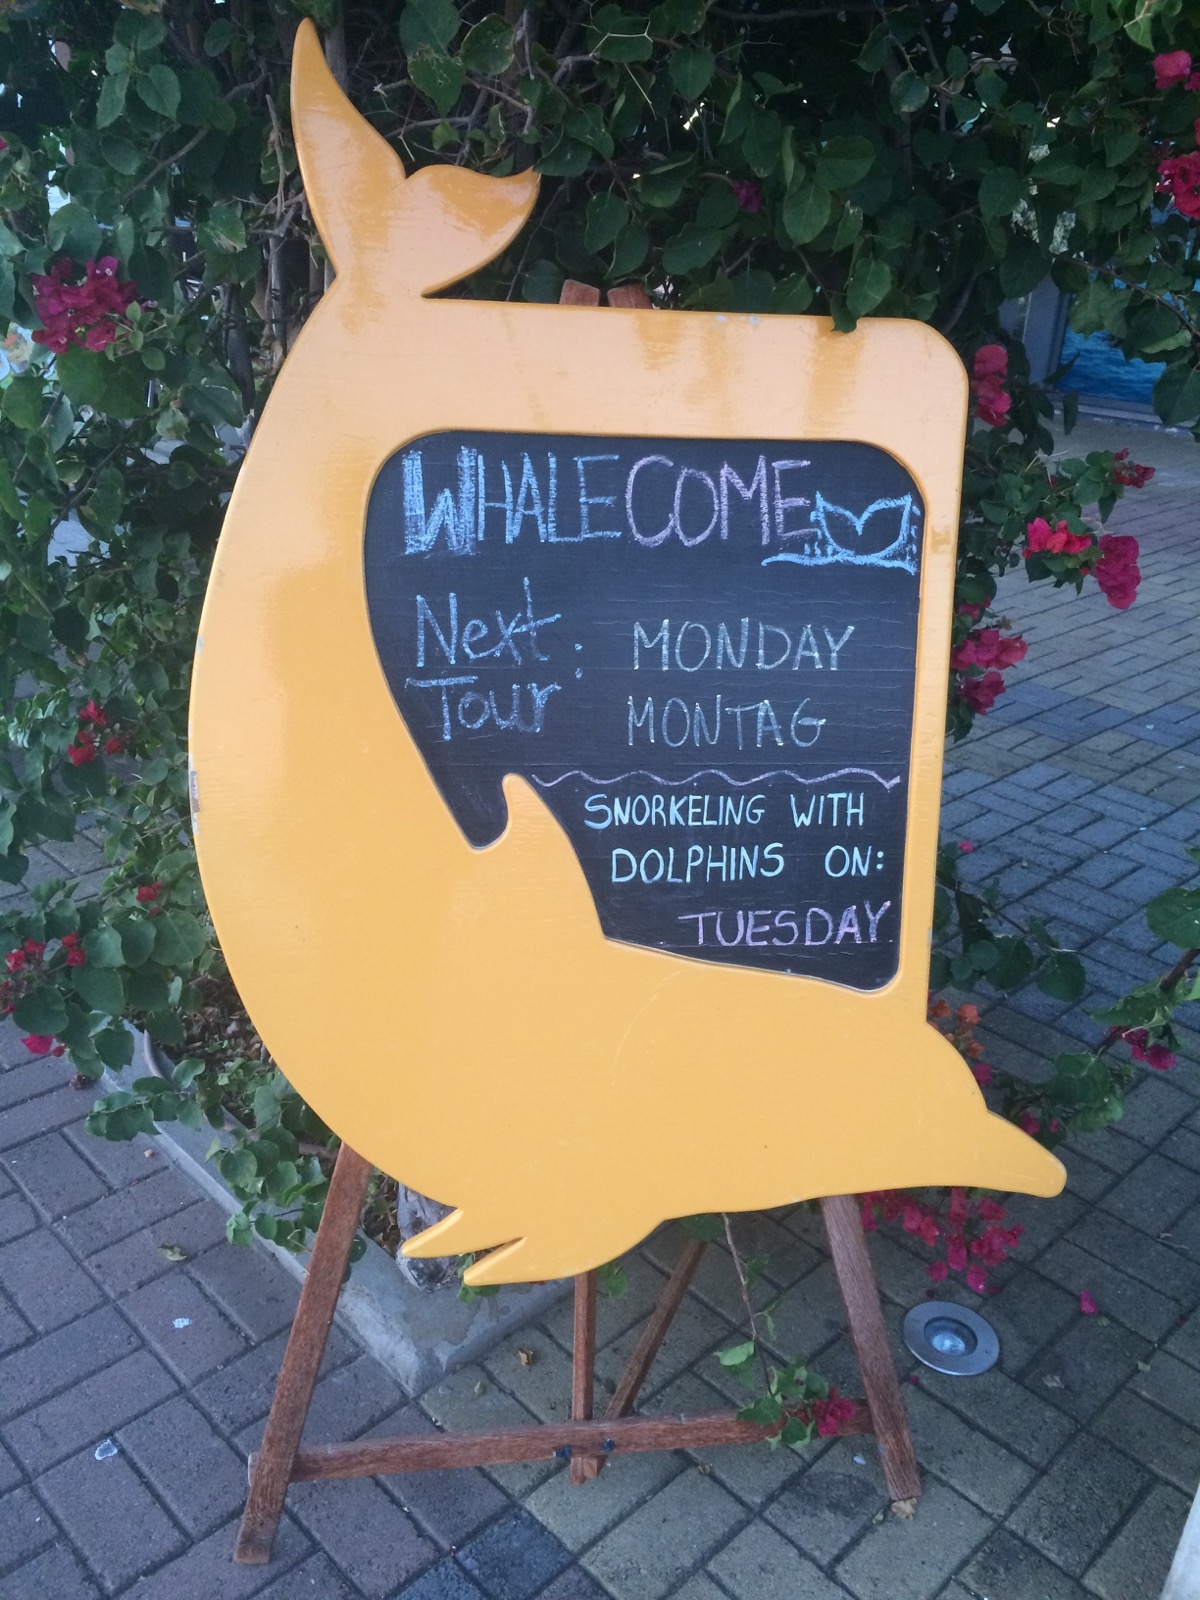 WHALECOME
Next : MONDAY
Tour MONTAG
SNORKELING WITH
DOLPHINS ON:
TUESDAY